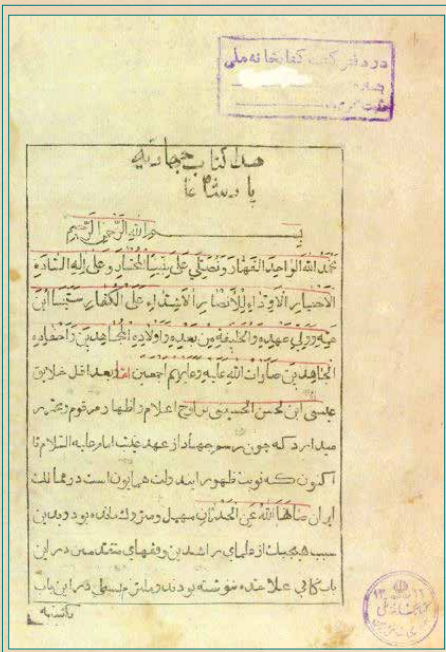 در دفتر کتب کتابخانه ملی
ثبت گردید
هذا کتاب جهادیه
بسم الله الرحمن الرحیم
نحمد الله الواحد القهار و نصلی علی نبینا المختار و علی اله السادة
الاخیار الاوداء للانصار الاشداء علی الکفار سیما ابن
عمه و ولی عهده و الخلیفة من بعده و اولاده المجاهدین و احفاده
الجاهدین صلوات الله علیه و علیهم اجمعین اما بعد اقل خلایق
عیسی ابن الحسن الحسینی بر لوح اعلام و اظهار مرقوم و محرر
میدارد که چون رسم جهاد از عهد غیبت امام علیه السلام تا
اکنون که نوبت ظهور این دولت همایون است در ممالک
ایران صانها الله عن الحدثان مهمل و متروک مانده بود و بدین
سبب هیچیک از علمای راشدین و فقهای متقدمین در این
باب کتابی علاحده ننوشته بودند و در این باب